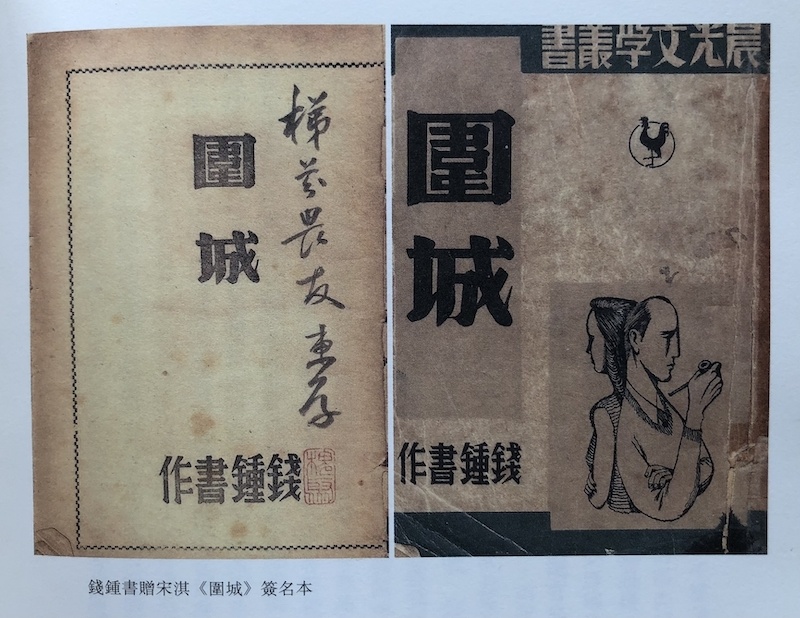 梯芬畏友惠存
圍城
錢鍾書作
槐聚
晨光文學叢書
圍城
錢鍾書作
錢鍾書贈宋淇《圍城》簽名本